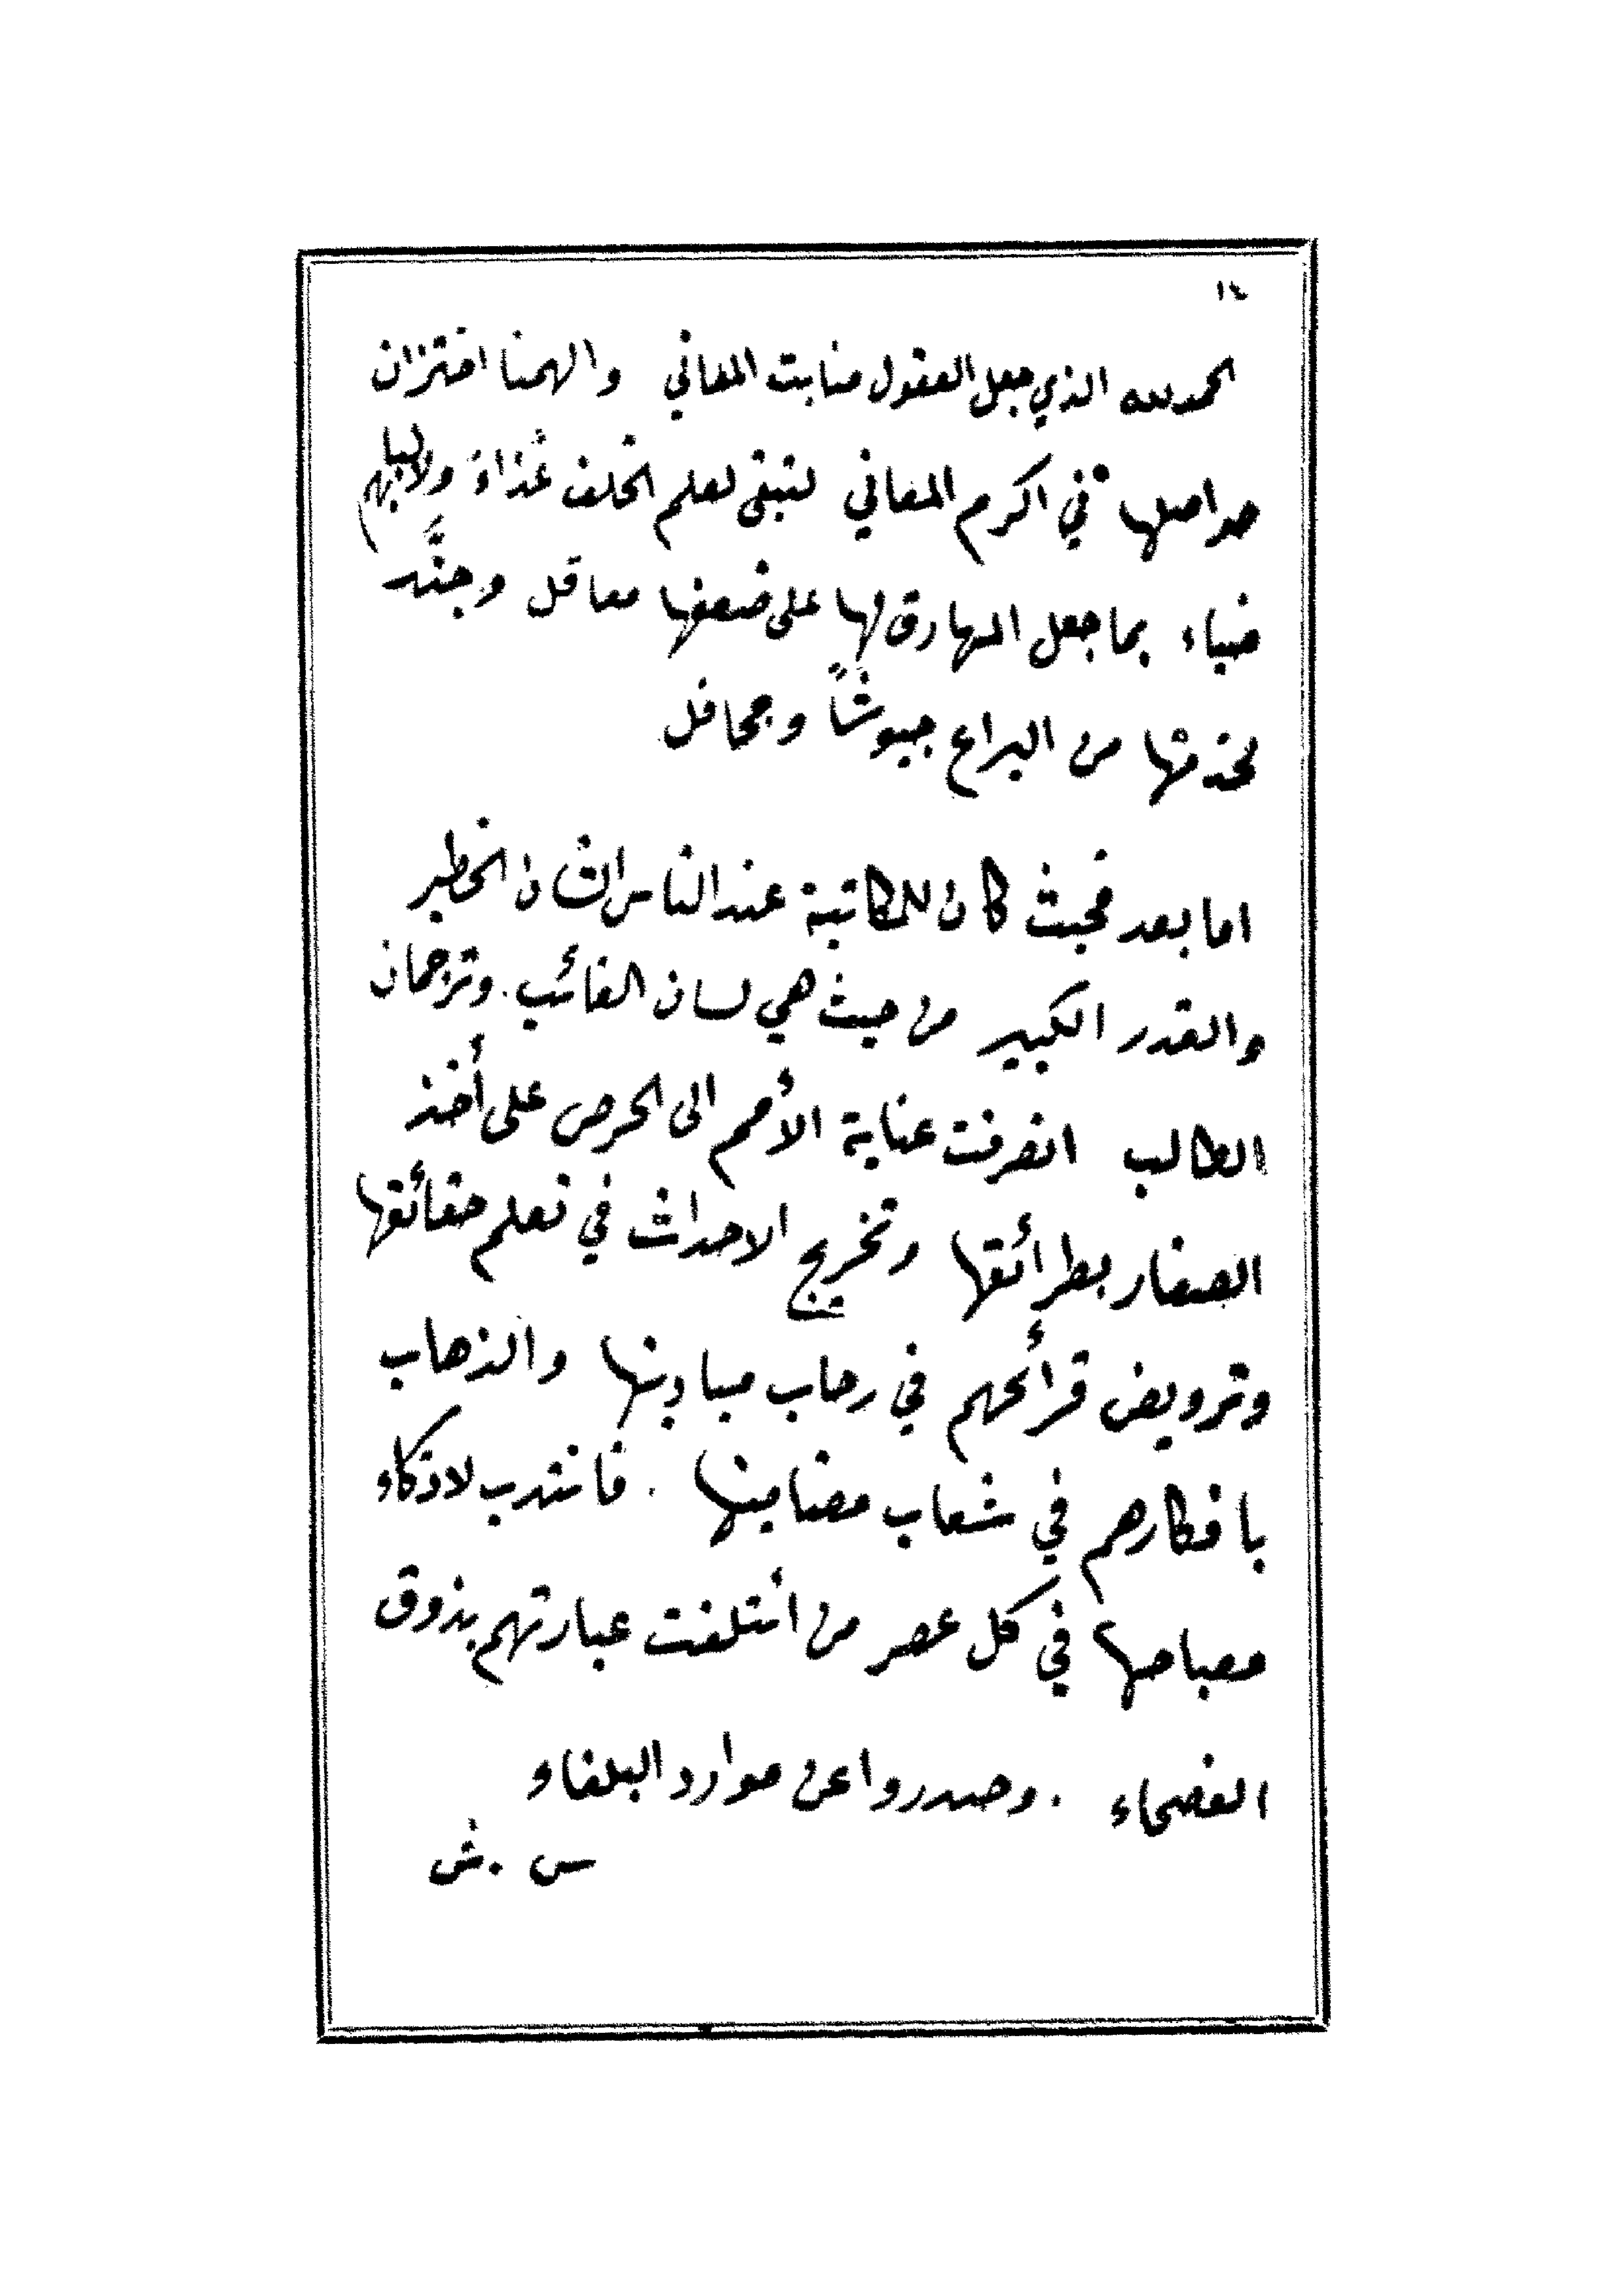 ١٤
الحمد لله الذي جعل العقول منابت المعاني والهمنا اختزان
حواصلها في اكرم المغاني لتبقى لعلم الخلف غذاءً ولألبابهم
ضياء بما جعل المهارق لها على ضعفها معاقل وجنَّد
لخدمتها من اليراع جيوشاً وجحافل
اما بعد فحيث كان للمكاتبة عند الناس الشان الخطير
والقدر الكبير من حيث هي لسان الغائب . وترجمان
الطالب انصرفت عناية الأمم الى الحرص على أخذ
الصغار بطرائقها وتخريج الاحداث في تعلم حقائقها
وترويض قرائحهم في رحاب ميادينها والذهاب
بافكارهم في شعاب مضامينها . فانتدب لاذكاء
مصباحها في كل عصر من ائتلفت عبارتهم بذوق
الفصحاء . وصدروا عن موارد البلغاء
س . ش